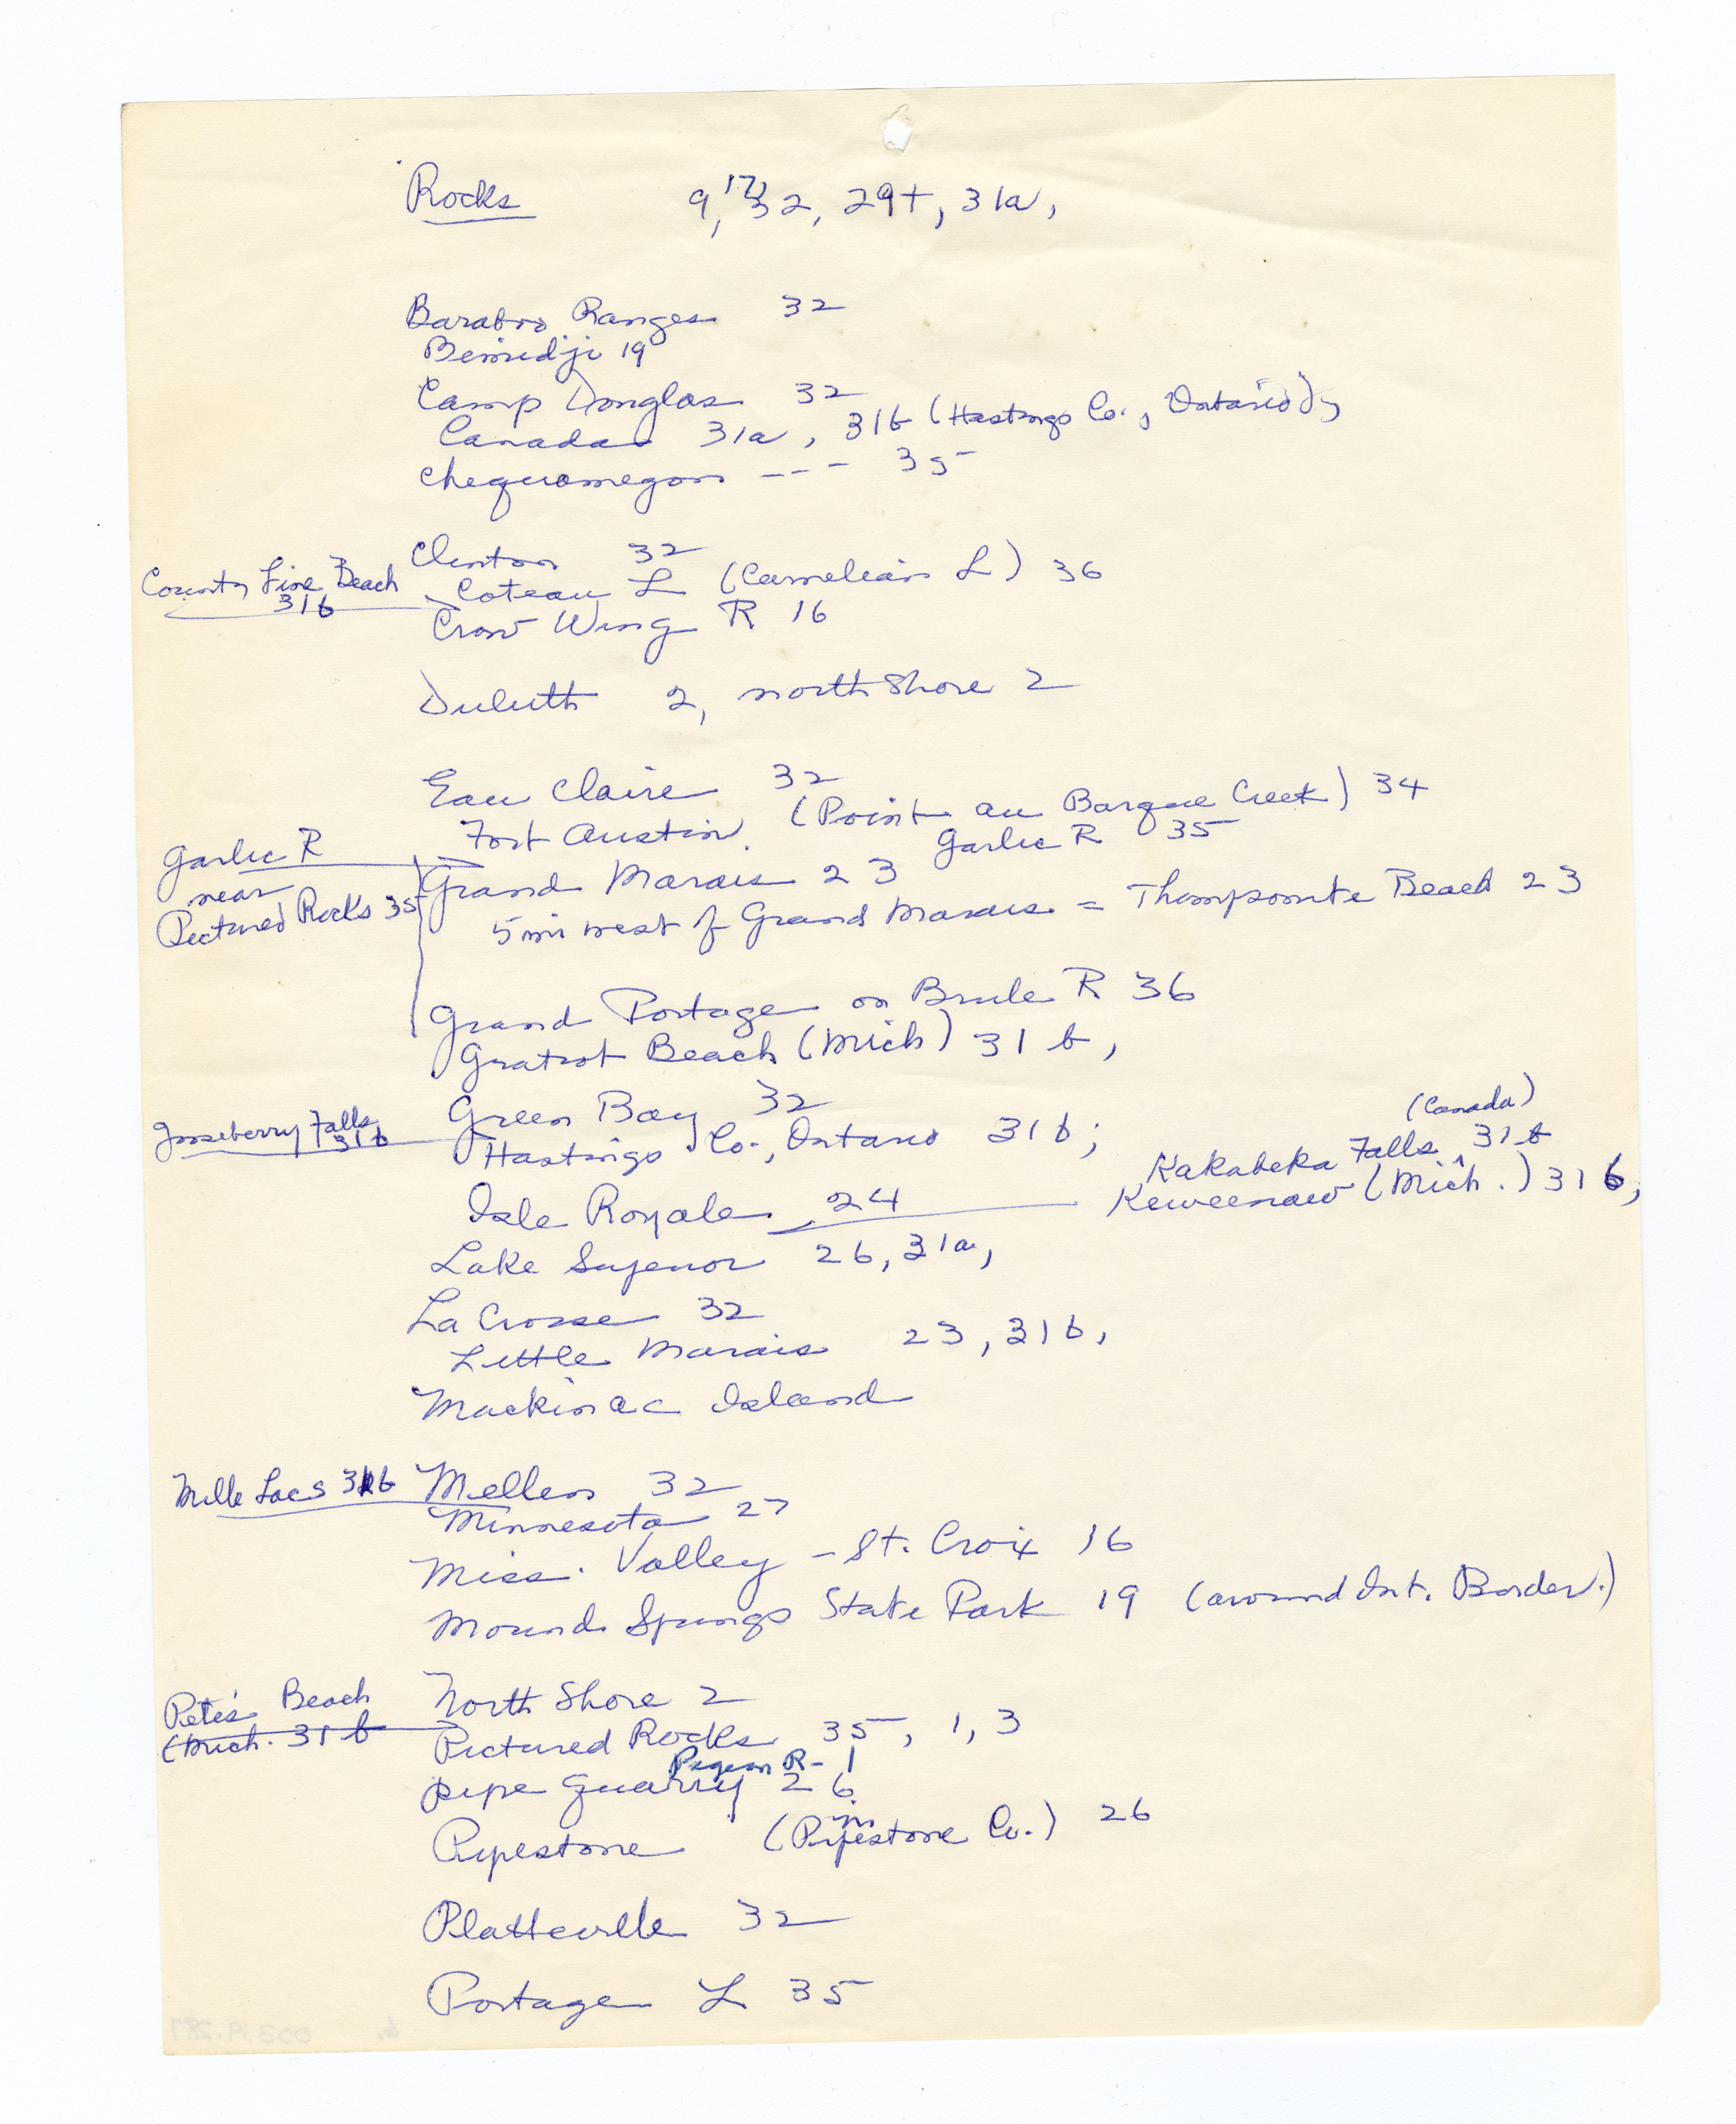 Rocks 9, 17, 32, 29+, 31a,
Baraboo Ranges 32
Bemidji 19
Camp Douglas 32
Canada 31a, 31b (Hastings Co., Ontario);
Chequamegon --- 35
Clinton 32
County Line Beach
31b
Coteau L (Carnelian L) 36
Crow Wing R 16
Duluth 2, north shore 2
Eau Claire 32
Fort Austin. (Point au Barque Creek) 34
Garlic R 35
Garlic R
near
Pictured Rocks 35
Grand Marais 23
5 mi west of Grand Marais = Thompsonite Beach 23
Grand Portage on Brule R 36
Gratiot Beach (Mich) 31b,
Green Bay 32
Gooseberry Falls
31b
Hastings Co., Ontario 31b;
(Canada)
Kakabeka Falls ^ 31b
Isle Royale 24
Keweenaw (Mich.) 31b,
Lake Superior 26, 31a,
La Crosse 32
Little Marais 23, 31b,
Mackinac Island
Mille Lacs 31b
Mellen 32
Minnesota 27
Miss. Valley - St. Croix 16
Mound Springs State Park 19 (around Int. Border.)
North Shore 2
Pete's Beach
(Mich. 31b
Pictured Rocks 35, 1, 3
Pigeon R - 1
pipe quarry 26
Pipestone (Pipestone Co.) 26
Platteville 32
Portage L 35